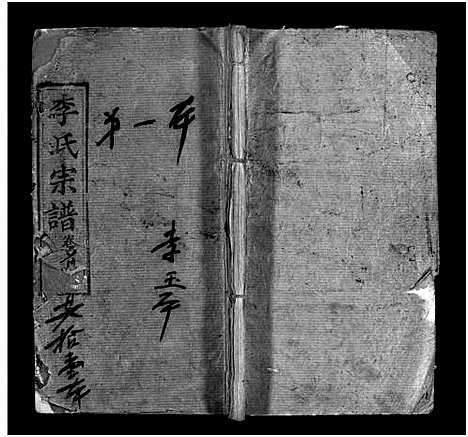 李氏宗譜卷首
共拾壹本
第一本
李玉平